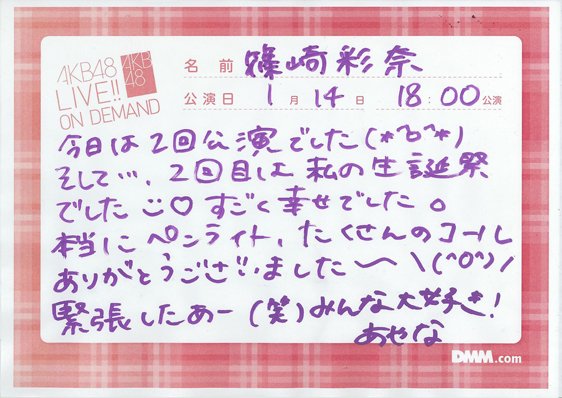 AKB48
LIVE!!
ON DEMAND
AKB
48
名前 篠崎彩奈
公演日 1月14日 18:00公演
今日は2回公演でした(*^o^*)
そして…、2回目は私の生誕祭
でした ♡ すごく幸せでした。
本当にペンライト、たくさんのコール
ありがとうございました〜\(^o^)/
緊張したあー(笑)みんな大好き!
あやな
DMM.com